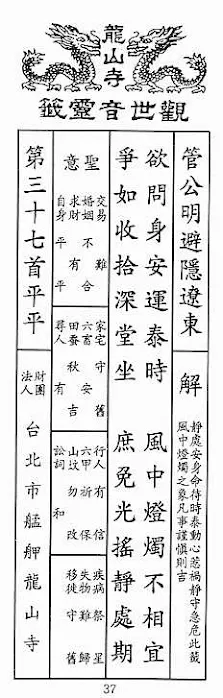 龍山寺
觀世音靈籤
管公明避隱遼東
解
靜處安身命待時泰動心惹禍靜守急危此籤
風中燈燭之象凡事謹慎則吉
欲問身安運泰時　風中燈燭不相宜
爭如收拾深堂坐　庶免光搖靜處期
聖意
交易難
婚姻不合
求財有
自身平平
家宅守舊
六畜安
田蠶秋吉
尋人有
行人有信
六甲祈保
山墳勿改
訟詞和
疾病祭星
失物難歸
移徙守舊
第三十七首平平
財團法人
台北市艋舺龍山寺
37